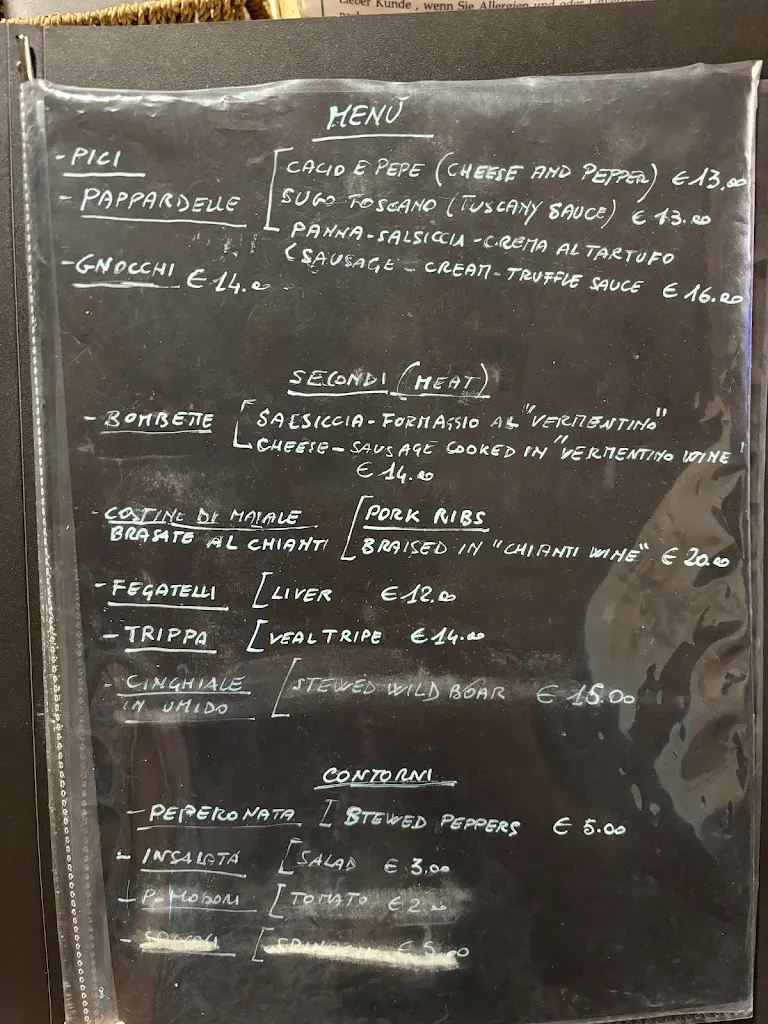 Lieber Kunde, wenn Sie Allergien und oder
MENÚ
- PICI
- PAPPARDELLE
CACIO E PEPE (CHEESE AND PEPPER) € 13.00
SUGO TOSCANO (TUSCANY SAUCE) € 13.00
PANNA-SALSICCIA-CREMA AL TARTUFO
(SAUSAGE - CREAM-TRUFFLE SAUCE € 16.00
- GNOCCHI € 14.00
SECONDI (MEAT)
- BOMBETTE
SALSICCIA-FORMAGGIO AL "VERMENTINO"
CHEESE-SAUSAGE COOKED IN "VERMENTINO WINE"
€ 14.00
- COSTINE DI MAIALE
BRASATE AL CHIANTI
PORK RIBS
BRAISED IN "CHIANTI WINE" € 20.00
- FEGATELLI [LIVER € 12.00
- TRIPPA [VEAL TRIPE € 14.00
- CINGHIALE
IN UMIDO
[STEWED WILD BOAR € 15.00
CONTORNI
- PEPERONATA [ STEWED PEPPERS € 5.00
- INSALATA [SALAD € 3.00
- POMODORI [TOMATO € 2.00
€ 5.00